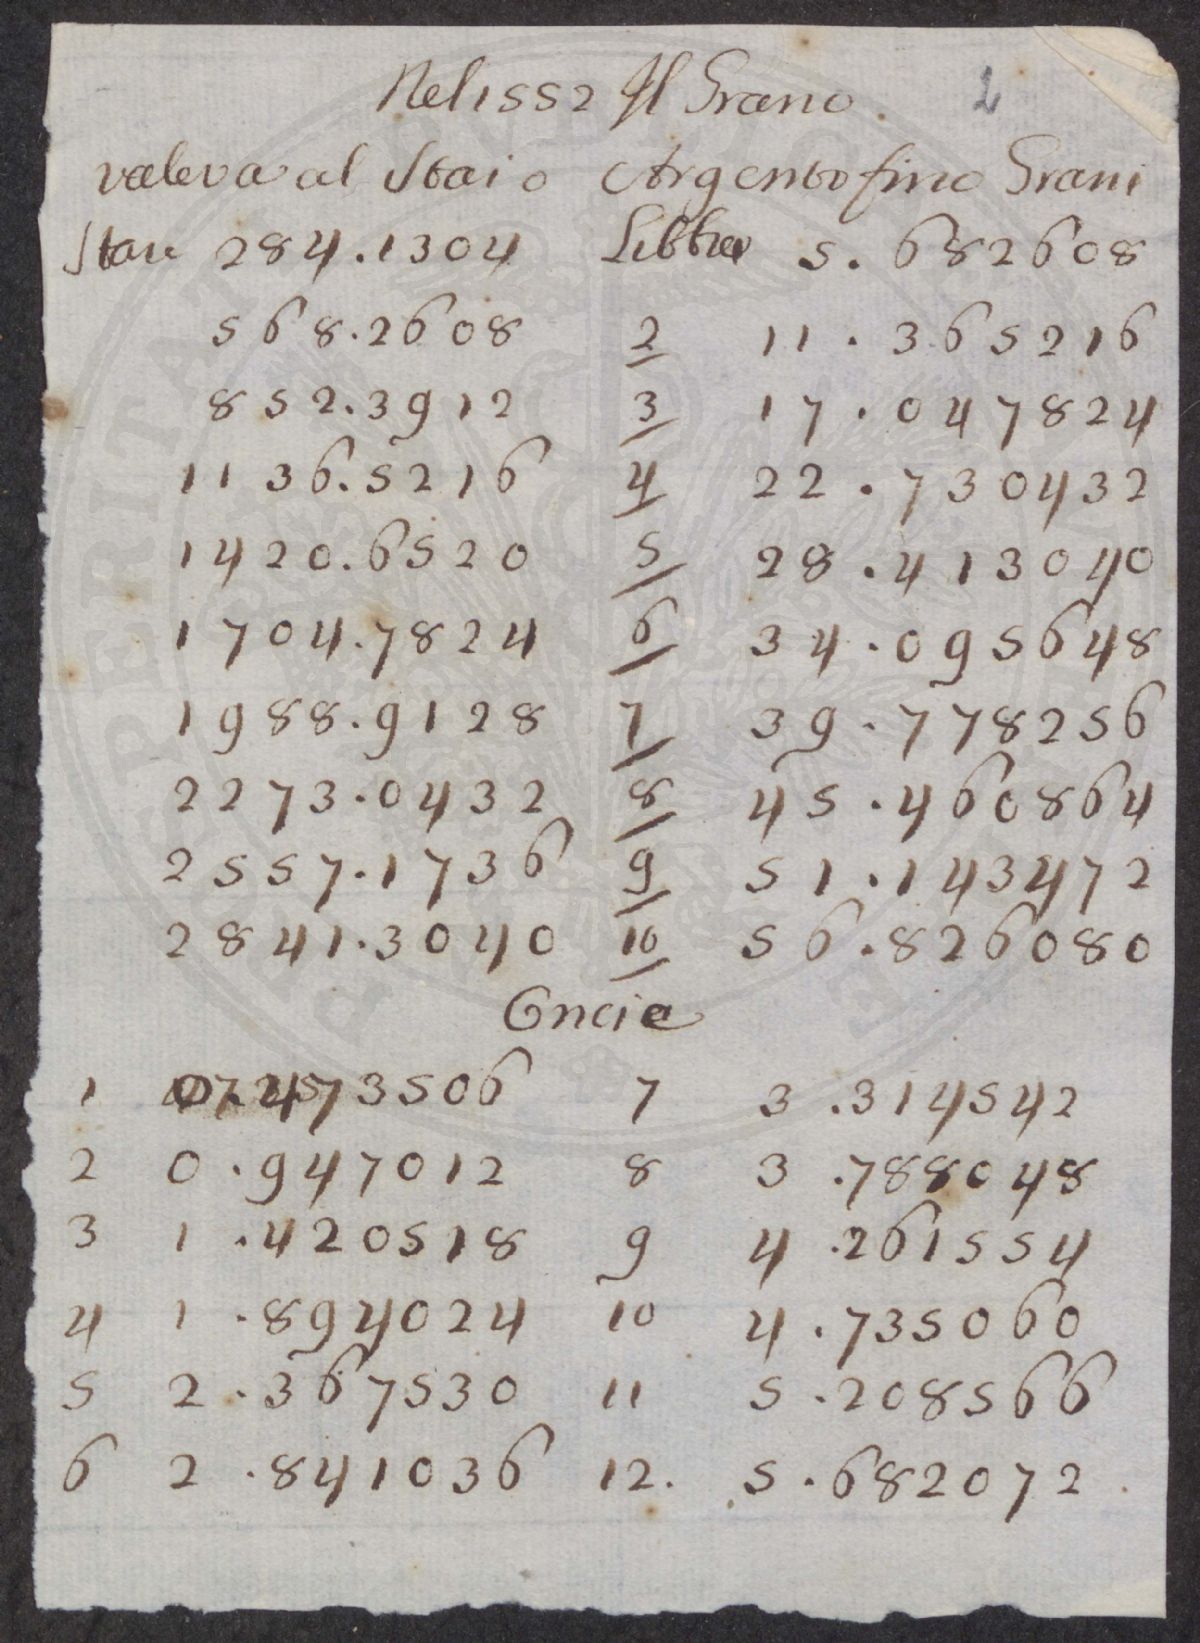 Nel 1552 Il Grano 2
valeva al Staio Argento fino Grani
Stari 284.1304 Libbra 5.682608
568.2608 2 11.365216
852.3912 3 17.047824
1136.5216 4 22.730432
1420.6520 5 28.413040
1704.7824 6 34.095648
1988.9128 7 39.778256
2273.0432 8 45.460864
2557.1736 9 51.143472
2841.3040 10 56.826080
Oncie
1 0.473506 7 3.314542
2 0.947012 8 3.788048
3 1.420518 9 4.261554
4 1.894024 10 4.735060
5 2.367530 11 5.208566
6 2.841036 12. 5.682072